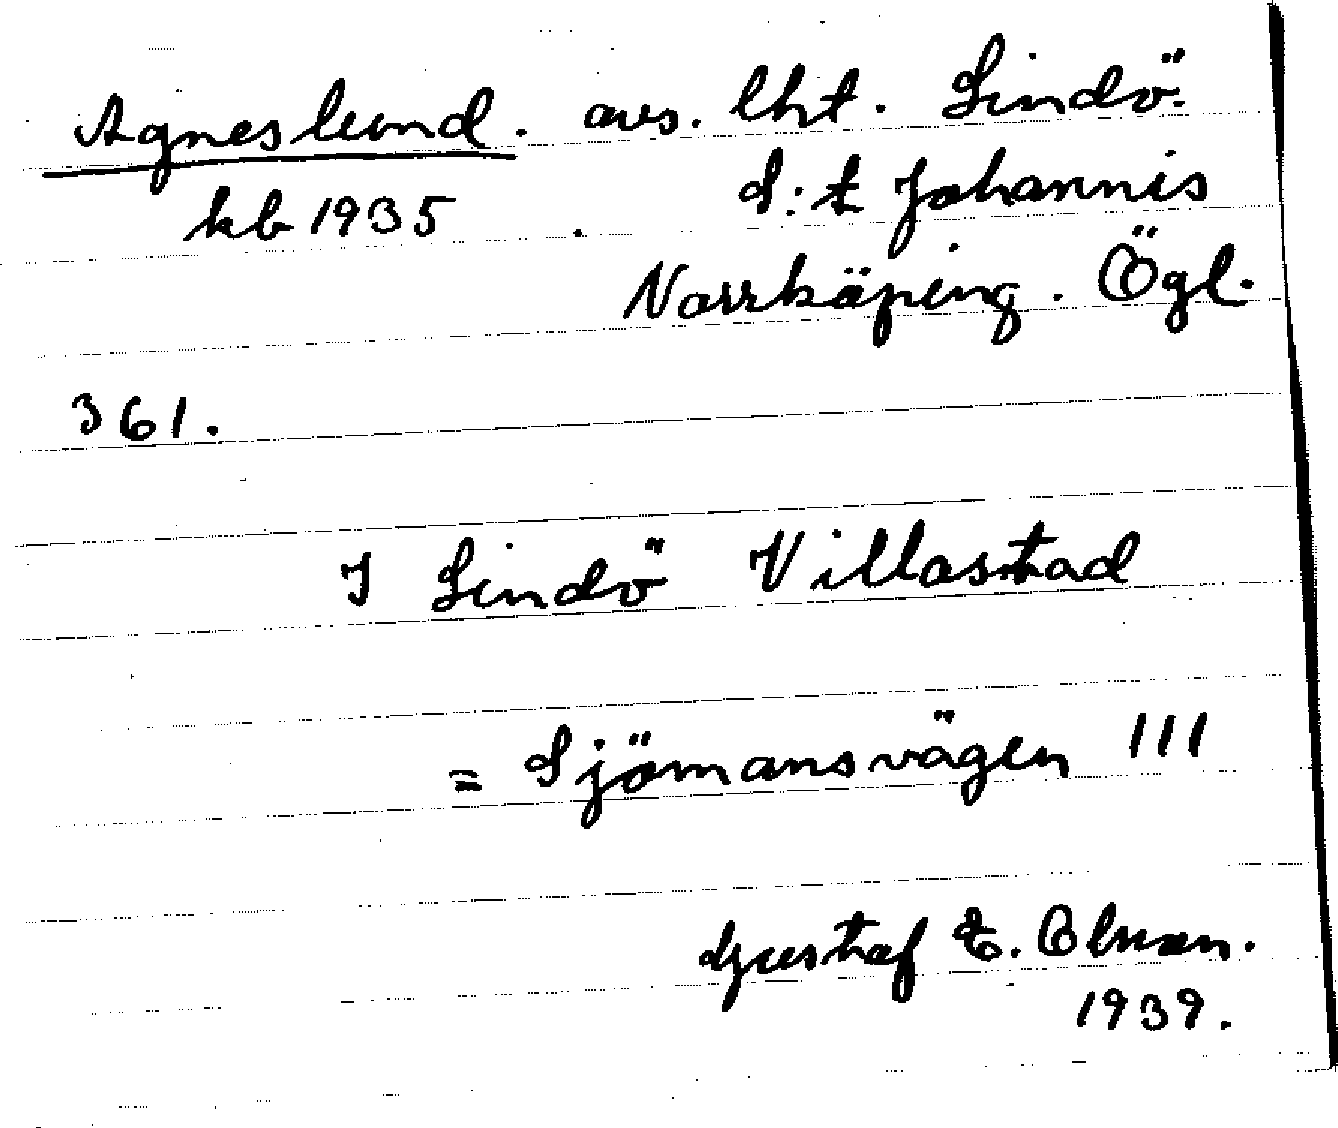 Agneslund. avs. lht. Lindö.
kb 1935 . S:t Johannis
Norrköping. Ögl.
361.
I Lindö Villastad
= Sjömansvägen 111
Gustaf E.
1939.